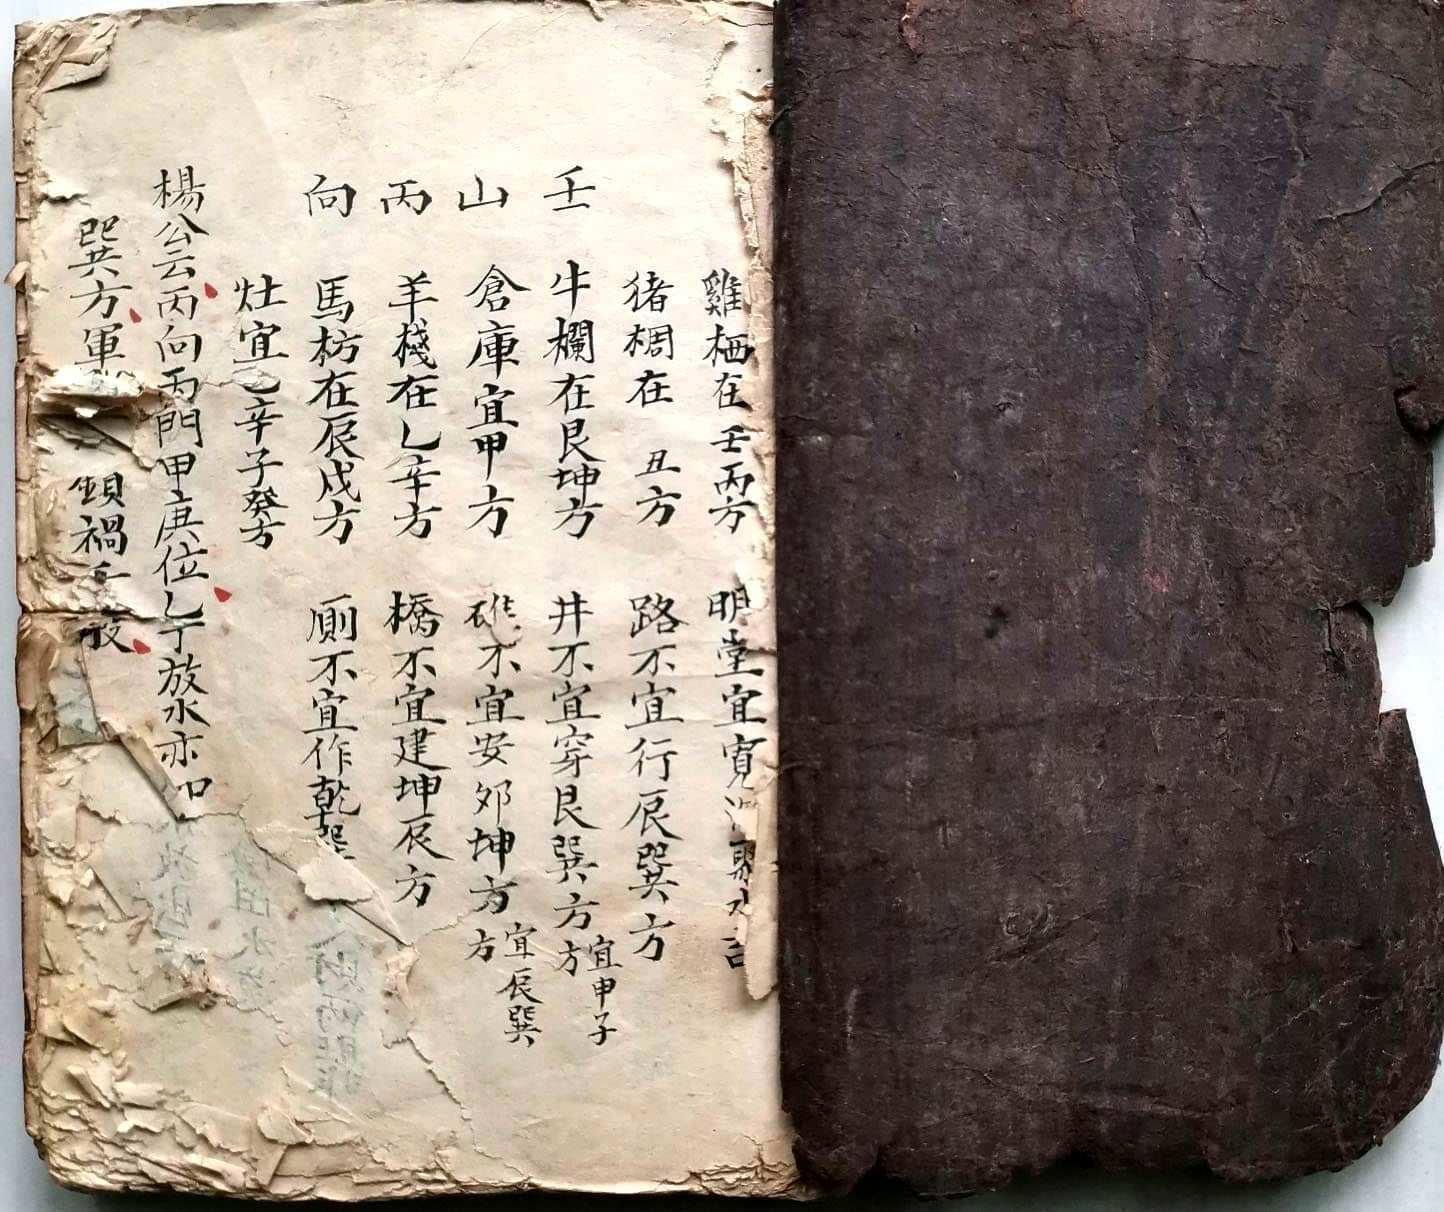 雞栖在壬丙方 明堂宜寬 聚水吉
猪椆在 丑方 路不宜行辰巽方
壬 牛欄在艮坤方 井不宜穿艮巽方 宜申子方
山 倉庫宜甲方 碓不宜安卯坤方 宜辰巽方
丙 羊棧在乚辛方 橋不宜建坤辰方
向 馬枋在辰戌方 厠不宜作乾巽
灶宜乙辛子癸方
楊公云丙向丙門甲庚位乚丁放水亦如
巽方軍 頭禍